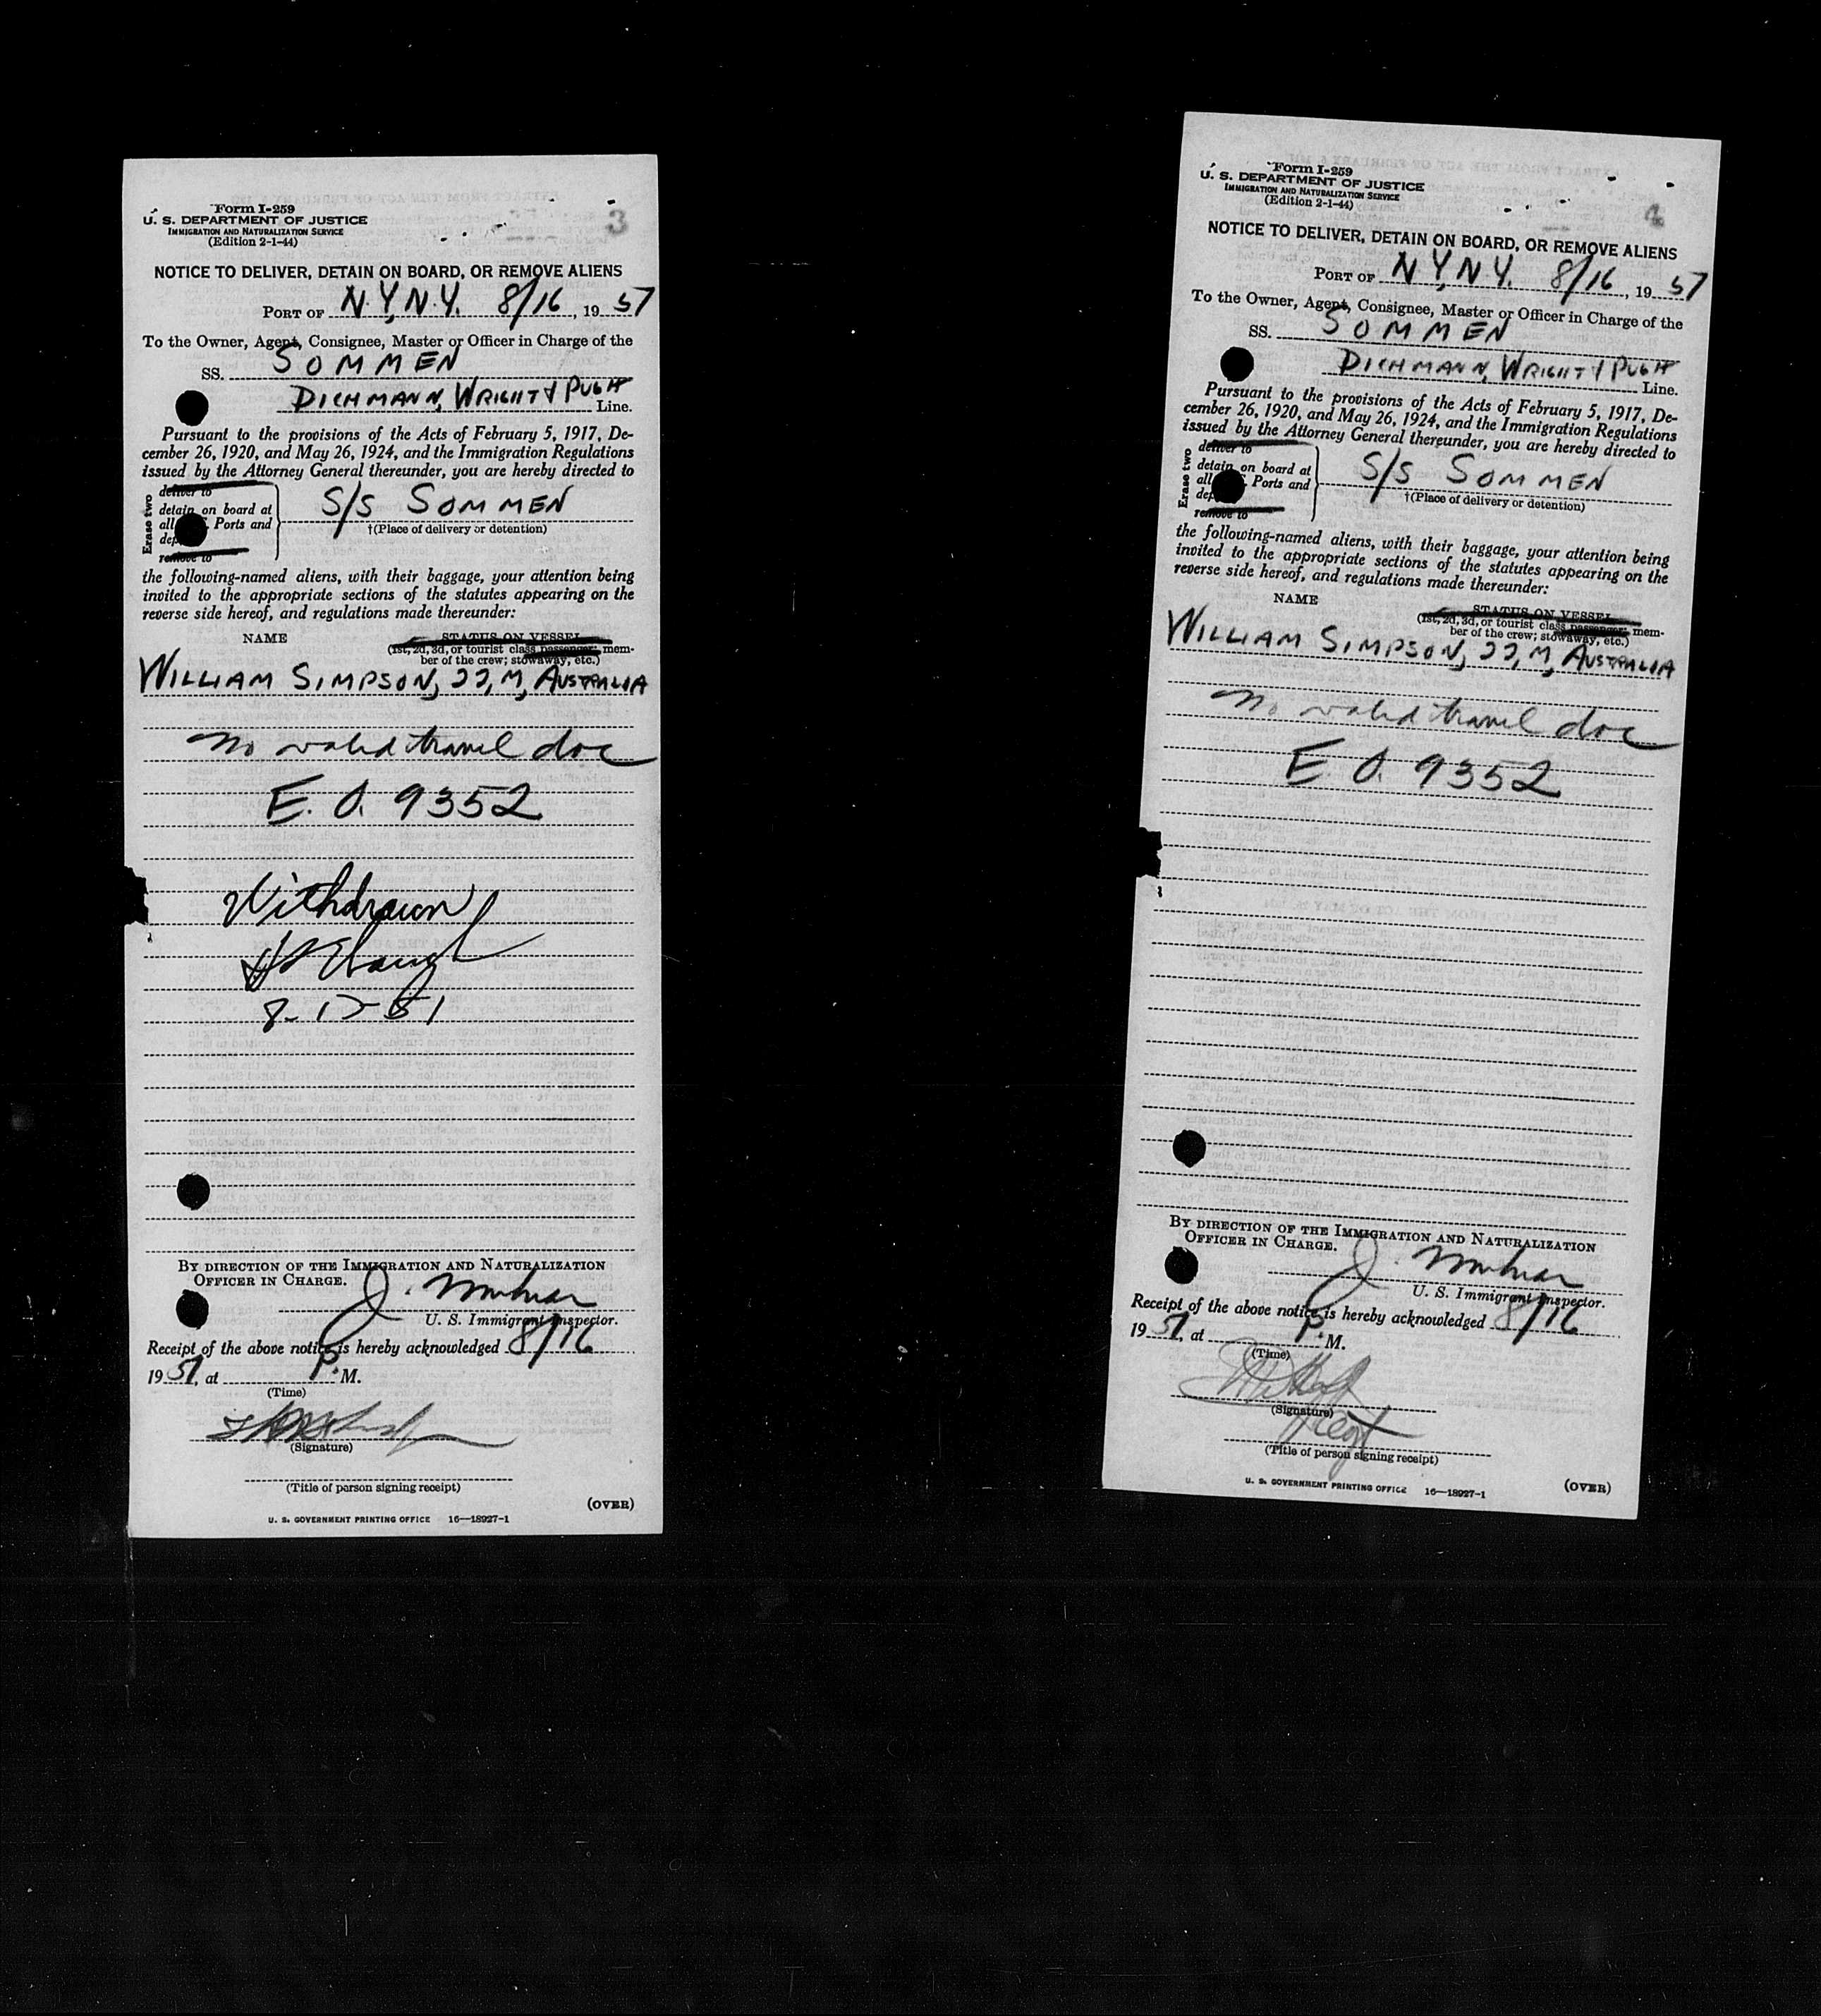 Form I-259
U. S. DEPARTMENT OF JUSTICE
IMMIGRATION AND NATURALIZATION SERVICE
(Edition 2-1-44)
3
NOTICE TO DELIVER, DETAIN ON BOARD, OR REMOVE ALIENS
PORT OF N.Y, N.Y. 8/16, 19 51
To the Owner, Agent, Consignee, Master or Officer in Charge of the
SS. SOMMEN
DICHMANN, WRIGHT & PUGH Line.
Pursuant to the provisions of the Acts of February 5, 1917, De-
cember 26, 1920, and May 26, 1924, and the Immigration Regulations
issued by the Attorney General thereunder, you are hereby directed to
Erase two
deliver to
detain on board at
all Ports and
dep
remove to
S/S SOMMEN
†(Place of delivery or detention)
the following-named aliens, with their baggage, your attention being
invited to the appropriate sections of the statutes appearing on the
reverse side hereof, and regulations made thereunder:
NAME
STATUS ON VESSEL
(1st, 2d, 3d, or tourist class passenger; mem-
ber of the crew; stowaway, etc.)
WILLIAM SIMPSON, 22, M, AUSTRALIA
No valid travel doc
E. O. 9352
Withdrawn
BY DIRECTION OF THE IMMIGRATION AND NATURALIZATION
OFFICER IN CHARGE.
J.
U. S. Immigrant Inspector.
Receipt of the above notice is hereby acknowledged 8/16
19 51, at P. M.
(Time)
(Signature)
(Title of person signing receipt)
(OVER)
U. S. GOVERNMENT PRINTING OFFICE 16—18927-1
Form I-259
U. S. DEPARTMENT OF JUSTICE
IMMIGRATION AND NATURALIZATION SERVICE
(Edition 2-1-44)
NOTICE TO DELIVER, DETAIN ON BOARD, OR REMOVE ALIENS
PORT OF N.Y, N.Y. 8/16, 19 51
To the Owner, Agent, Consignee, Master or Officer in Charge of the
SS. SOMMEN
DICHMANN, WRIGHT & PUGH Line.
Pursuant to the provisions of the Acts of February 5, 1917, De-
cember 26, 1920, and May 26, 1924, and the Immigration Regulations
issued by the Attorney General thereunder, you are hereby directed to
Erase two
deliver to
detain on board at
all Ports and
dep
remove to
S/S SOMMEN
†(Place of delivery or detention)
the following-named aliens, with their baggage, your attention being
invited to the appropriate sections of the statutes appearing on the
reverse side hereof, and regulations made thereunder:
NAME
STATUS ON VESSEL
(1st, 2d, 3d, or tourist class passenger; mem-
ber of the crew; stowaway, etc.)
WILLIAM SIMPSON, 22, M, AUSTRALIA
No valid travel doc
E O. 9352
BY DIRECTION OF THE IMMIGRATION AND NATURALIZATION
OFFICER IN CHARGE.
J.
U. S. Immigrant Inspector.
Receipt of the above notice is hereby acknowledged 8/16
19 51, at P. M.
(Time)
(Signature)
(Title of person signing receipt)
U. S. GOVERNMENT PRINTING OFFICE 16—18927-1
(OVER)